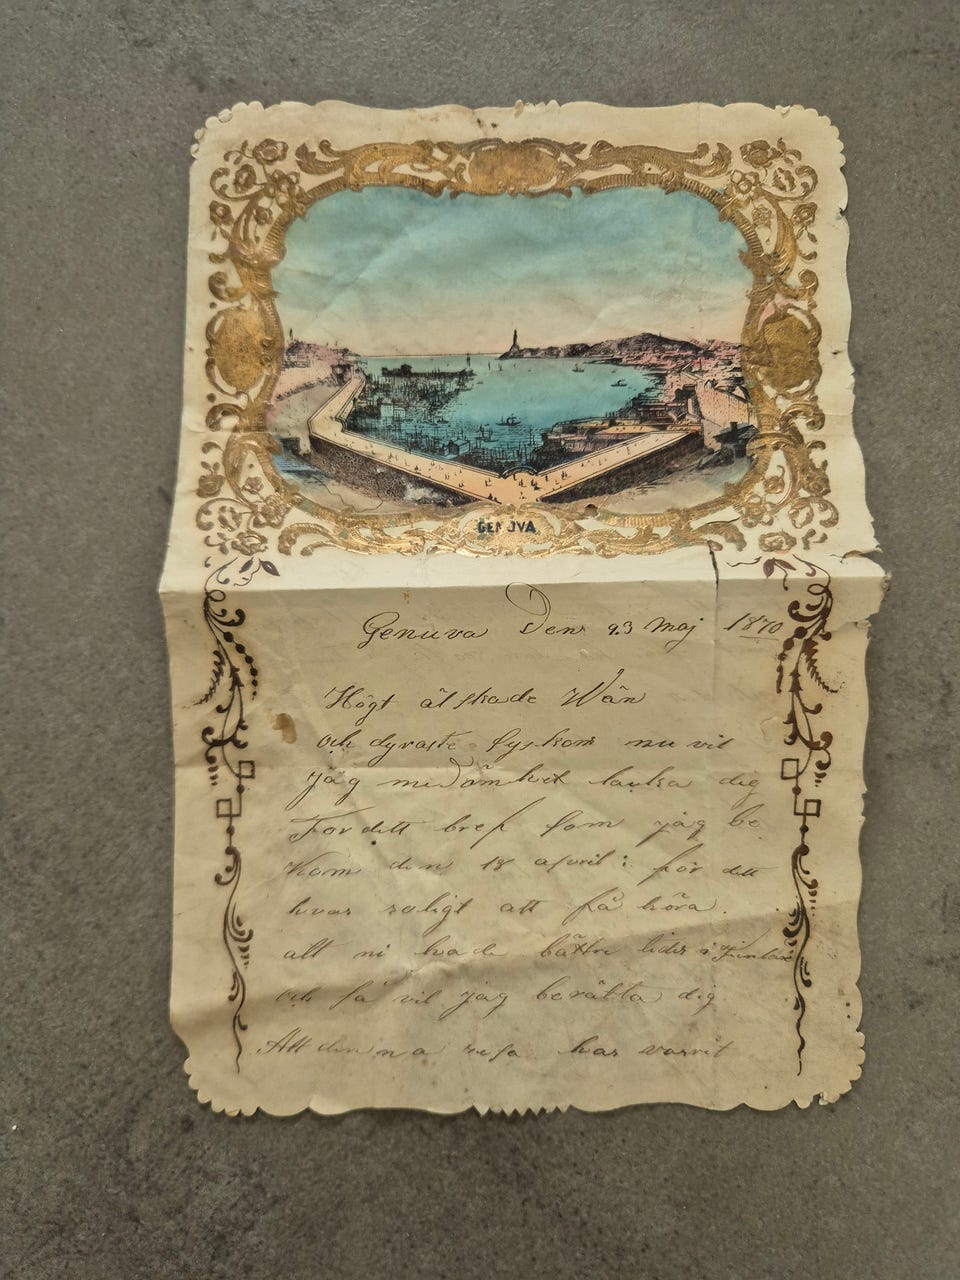 GENOVA
Genuva Den 23 Maj 1870
Högt älskade Wän
och dyraste syskon nu vil
jag med ömhet tacka dig
For ditt bref som jag be
Kom den 18 april: for dett
hvar roligt att få höra
att ni hade bättre tider i
och så vil jag berätta dig
Att denna resa har varit